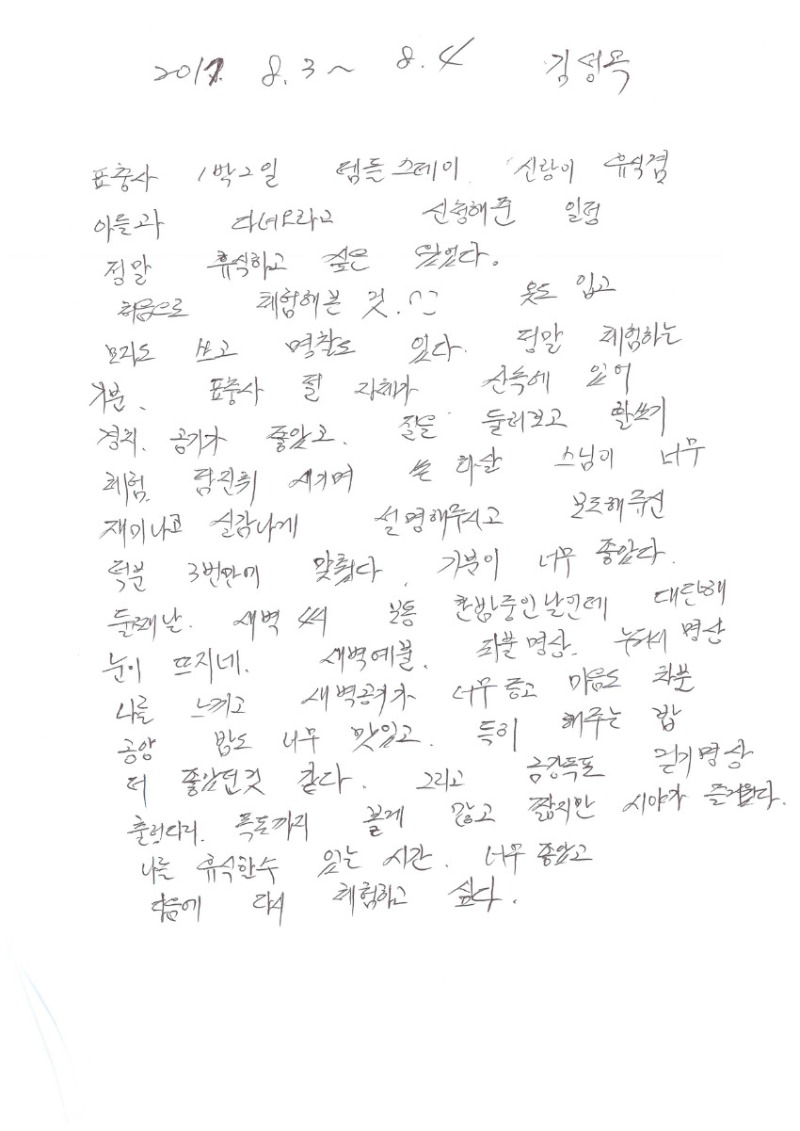 2017. 8.3 ~ 8.4 김성옥
표충사 1박2일 템플스테이. 신랑이 휴식겸
아들과 다녀오라고 신청해준 일정
정말 휴식하고 싶은 있었다.
처음으로 체험해본 것. ^^ 옷도 입고
모자도 쓰고 명찰도 있다. 정말 체험하는
기분. 표충사 절 자체가 산속에 있어
경치. 공기가 좋았고. 절을 둘러보고 활쏘기
체험. 스님이 너무
재미나고 실감나게 설명해주시고 보조해주신
덕분 3번만에 맞췄다. 기분이 너무 좋았다.
둘째날. 새벽 4시 보통 한밤중인날인데 대단해
눈이 뜨지네. 새벽예불. 좌불명상. 누워서 명상
나를 느끼고 새벽공기가 너무 좋고 마음도 차분
공양 밥도 너무 맛있고. 특히 해주는 밥
더 좋았던것 같다. 그리고 금강폭포 걷기명상
출렁다리. 폭포까지 볼게 많고 짧지만 시야가 즐거웠다.
나를 휴식할수 있는 시간. 너무 좋았고
다음에 다시 체험하고 싶다.